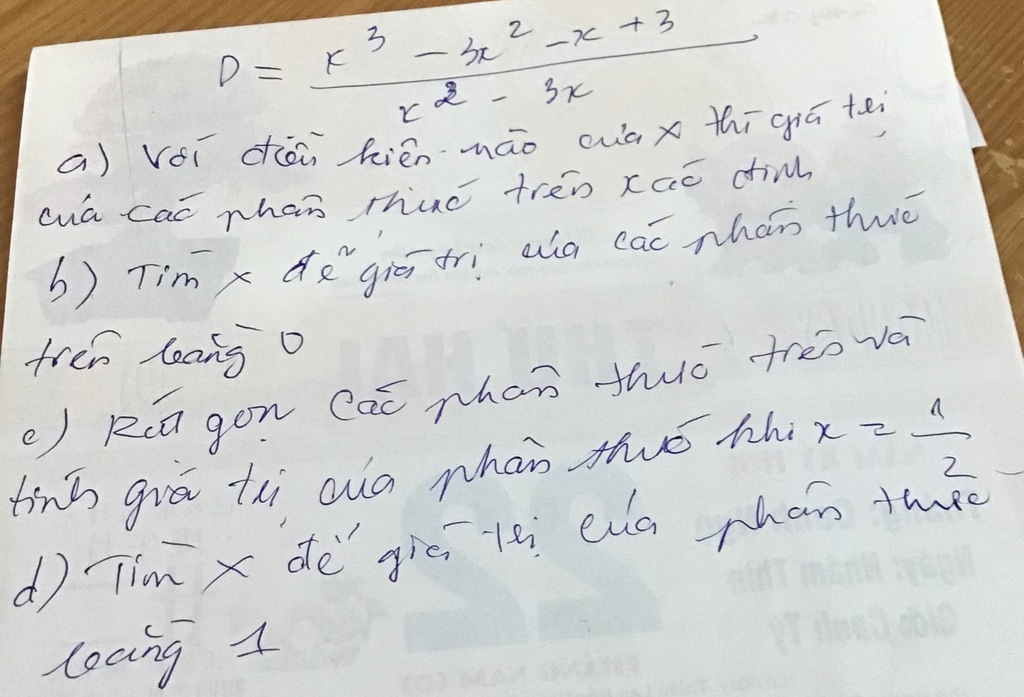 D = \frac{x^3 - 3x^2 - x + 3}{x^2 - 3x}
a) Với điều kiện nào của x thì giá trị
của các phân thức trên xác định
b) Tìm x để giá trị của các phân thức
trên bằng 0
c) Rút gọn các phân thức trên và
tính giá trị của phân thức khi x = \frac{1}{2}
d) Tìm x để giá trị của phân thức
bằng 1
THỨ HAI
22
Ngày: Nhâm Thìn
Giờ: Canh Tý